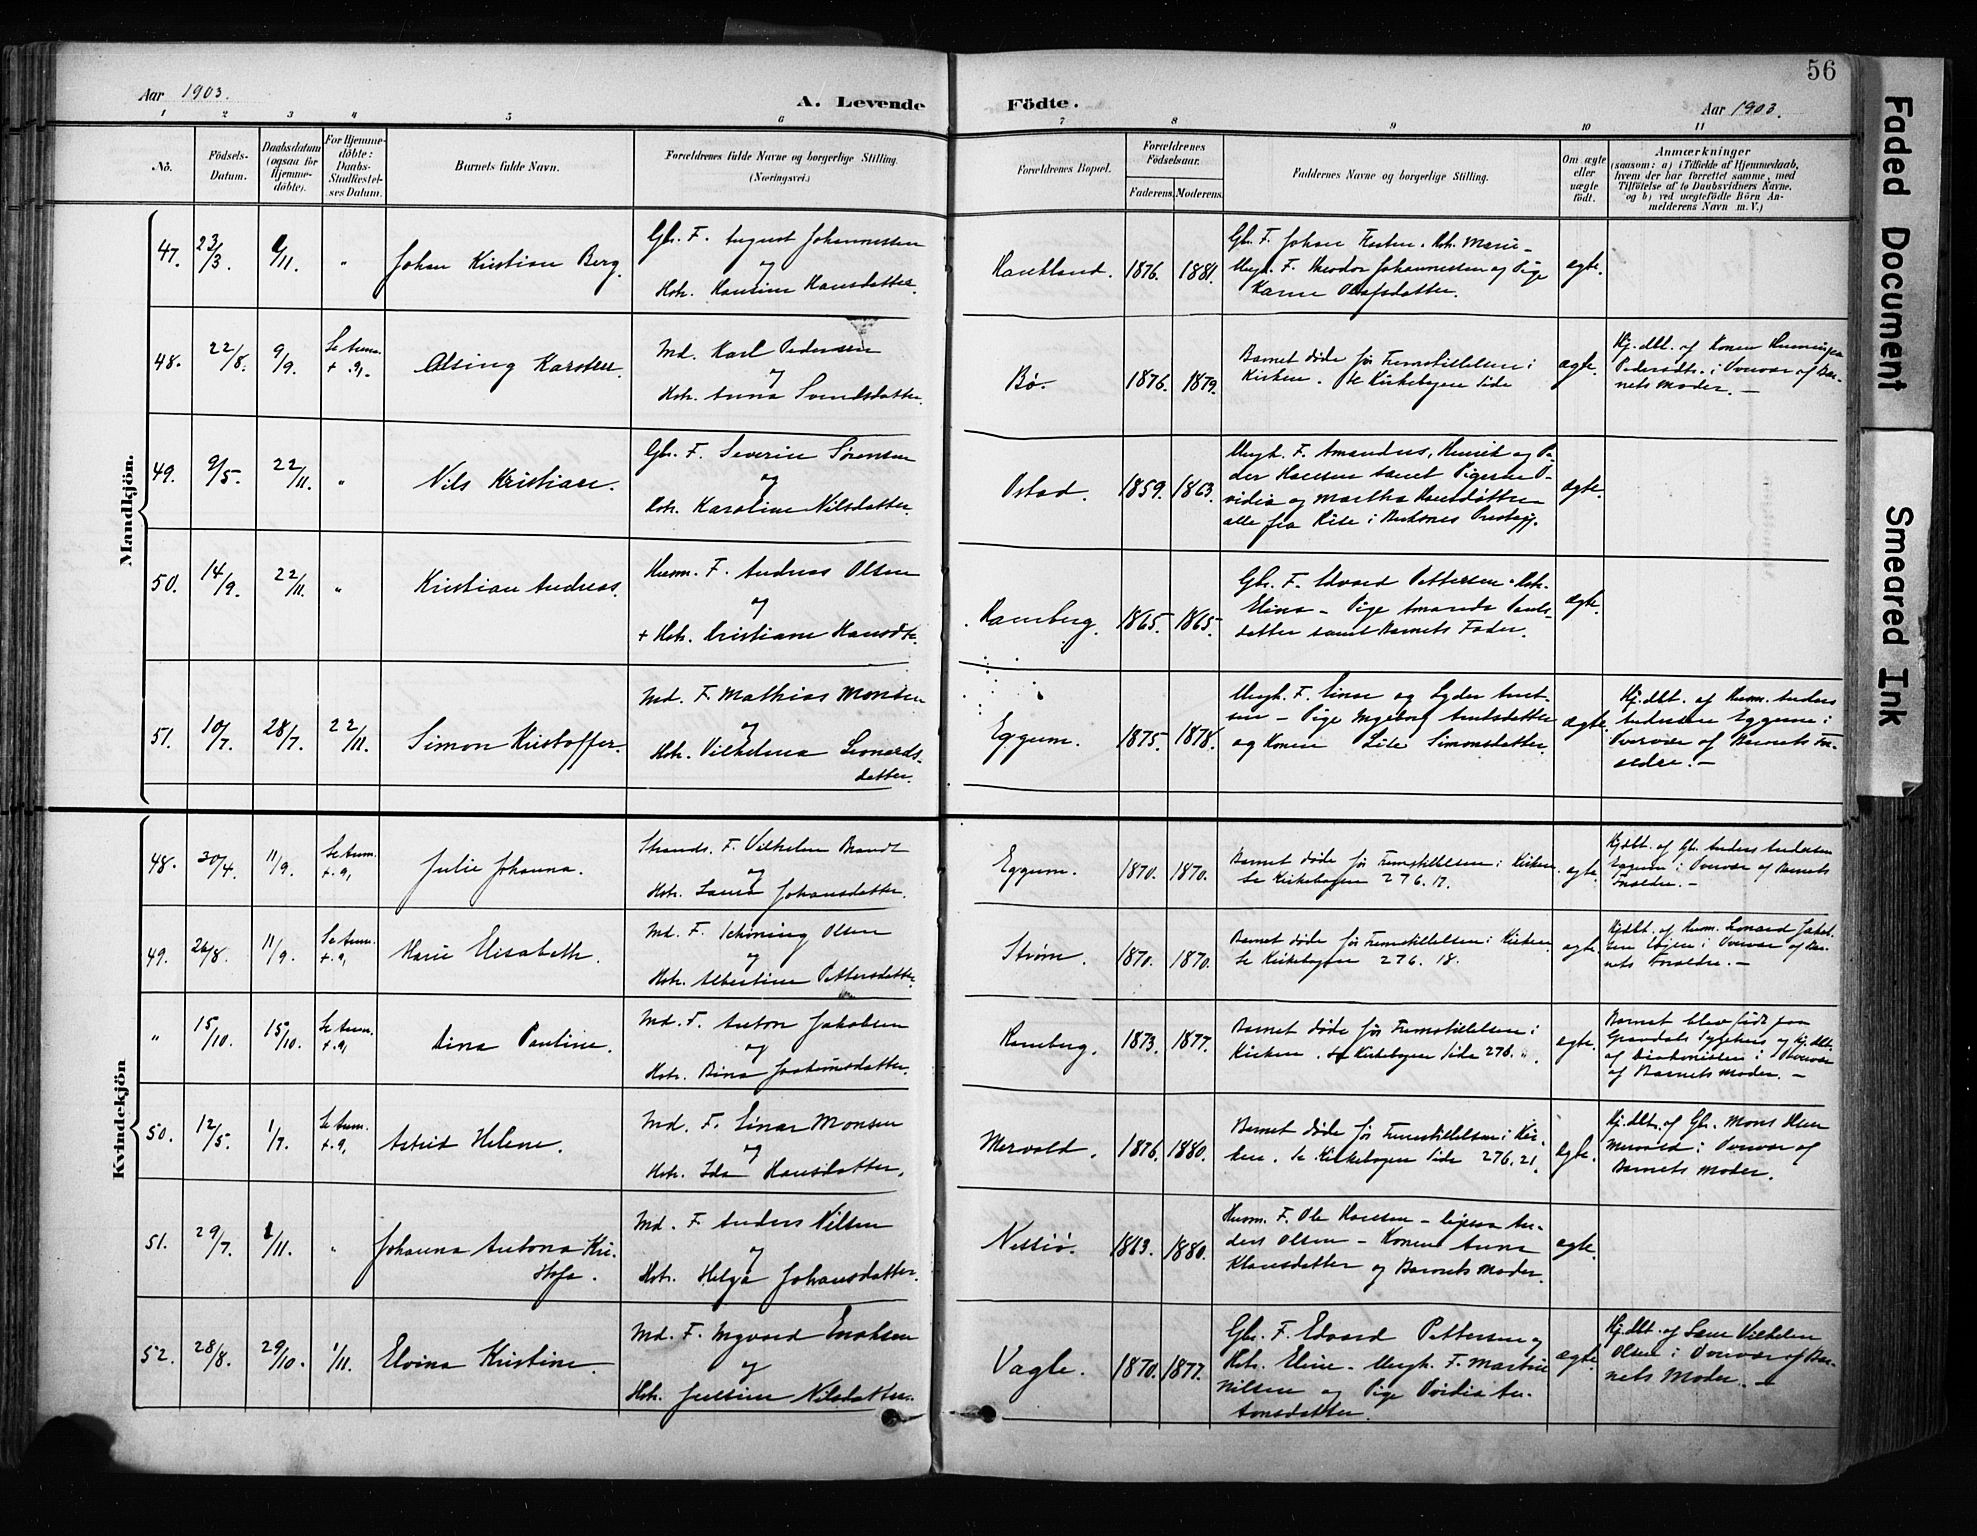 56
Aar 1903.
A. Levende Födte.
Aar 1903.
1 2 3 4 5 6 7 8 9 10 11
Nô.
Födsels-
Datum.
Daabsdatum
(ogsaa for
Hjemme-
döbte).
For Hjemme-
döbte:
Daabs-
Stadfæstel-
ses Datum.
Barnets fulde Navn.
Forældrenes fulde Navne og borgerlige Stilling.
(Næringsvei.)
Forældrenes Bopæl.
Forældrenes
Födselsaar.
Faderens. Moderens.
Faddernes Navne og borgerlige Stilling.
Om ægte
eller
uægte
födt.
Anmærkninger
(saasom: a) i Tilfælde af Hjemmedaab,
hvem der har forrettet samme, med
Tilföielse af to Daabsvidners Navne,
og b) ved uægtefödte Börn An-
melderens Navn m. V.)
Mandkjön.
47. 23/3. 1/11. " Johan Kristian Berg.
Gbr. F. August Johannessen
og
Hstr. Hansine Hansdatter.
Haukland. 1876. 1881.
Gbr. F. Johan Hstr. Marie –
Ungk. F. Theodor Johannessen og Pige
Olafsdatter.
ægte.
48. 22/8. 9/9. Se Anm. + 9, Karsten.
Md. Karl Pedersen
og
Hstr. Anna Svendsdatter.
Bø. 1876. 1879.
Barnet døde før Fremstillelsen i
Kirken. Se Kirkebogen Side
ægte.
Hj.dbt. af Konen
Pedersdtr. i Overvær af Bar-
nets Moder. –
49. 9/5. 22/11. " Nils Kristian.
Gbr. F. Severin Sørensen
og
Hstr. Karoline Nilsdatter.
Ostad. 1859. 1863.
Ungk. F. Amandus, Henrik og Pe-
der Hansen samt Pigerne O-
vidia og Martha Hansdøttre
alle fra i Buksnes Prestegj.
ægte.
50. 14/9. 22/11. " Kristian Andreas.
Husm. F. Andreas Olsen
og
+ Hstr. Kristiane Hansdtr.
Ramberg. 1865. 1865.
Gbr. F. Edvard Pettersen – Hstr.
Elina – Pige Amanda Pauls-
datter samt Barnets Fader.
ægte.
51. 10/7. 28/7. 22/11. Simon Kristoffer.
Md. F. Mathias Monsen
og
Hstr. Vilhelmine Leonards-
datter.
Eggum. 1875. 1878.
Ungk. F. Einar og Lyder Arnt-
sen – Pige Ingeborg Arntsdatter
og Konen Simonsdatter.
ægte.
Hj.dbt. af Husm. Anders
Andersen Eggum i
Overvær af Barnets For-
ældre. –
Kvindekjön
48. 30/4. 11/9. Se Anm. + 9, Julie Johanna.
Strands. F. Vilhelm Brandt
og
Hstr. Laura Johansdatter.
Eggum. 1870. 1870.
Barnet døde før Fremstillelsen i Kirken.
Se Kirkebogen 276. 17.
ægte.
Hj.dbt. af Gbr. Anders Andersen
Eggum i Overvær af Barnets
Forældre. –
49. 26/8. 11/9. Se Anm. + 9, Marie Elisabeth.
Md. F. Schøning Olsen
og
Hstr. Albertine Pettersdatter.
Strøm. 1870. 1870.
Barnet døde før Fremstillelsen i Kirken.
Se Kirkebogen 276. 18.
ægte.
Hj.dbt. af Husm. Leonard Jakob-
sen i Overvær af Bar-
nets Forældre. –
" 15/10. 15/10. Se Anm. + 9, Dina Pauline.
Md. F. Anton Jakobsen
og
Hstr. Bina Joakimsdatter.
Ramberg. 1873. 1877.
Barnet døde før Fremstillelsen i
Kirken. Se Kirkebogen Side 276. ".
ægte.
Barnet blev født paa
Gravdals Sygehus og Hj.dbt.
af Diakonissen i Overvær
af Barnets Moder. –
50. 12/5. 1/7. Se Anm. + 9, Astrid Helene.
Md. F. Einar Monsen
og
Hstr. Ida Hansdatter.
Mervold. 1876. 1880.
Barnet døde før Fremstillelsen i Kir-
ken. Se Kirkebogen Side 276. 21.
ægte.
Hj.dbt. af Gbr. Mons Olsen
Mervold i Overvær af
Barnets Moder.
51. 29/7. 1/11. " Johanna Antona Kri-
stofa.
Md. F. Anders Nilsen
og
Hstr. Helga Johansdatter.
1863. 1880.
Husm. F. Ole Hansen – An-
ders Olsen – Konen Anna
Klausdatter og Barnets Moder.
ægte.
52. 28/8. 29/10. 1/11. Elvina Kristine.
Md. F. Ingvard Enoksen
og
Hstr. Justine Nilsdatter.
Vagle. 1870. 1877.
Gbr. F. Edvard Pettersen og
Hstr. Eline – Ungk. F. Martin
Nilsen og Pige Ovidia An-
tonsdatter.
ægte.
Hj.dbt. af Vilhelm
Olsen i Overvær af Bar-
nets Moder. –
Faded Document
Smeared Ink